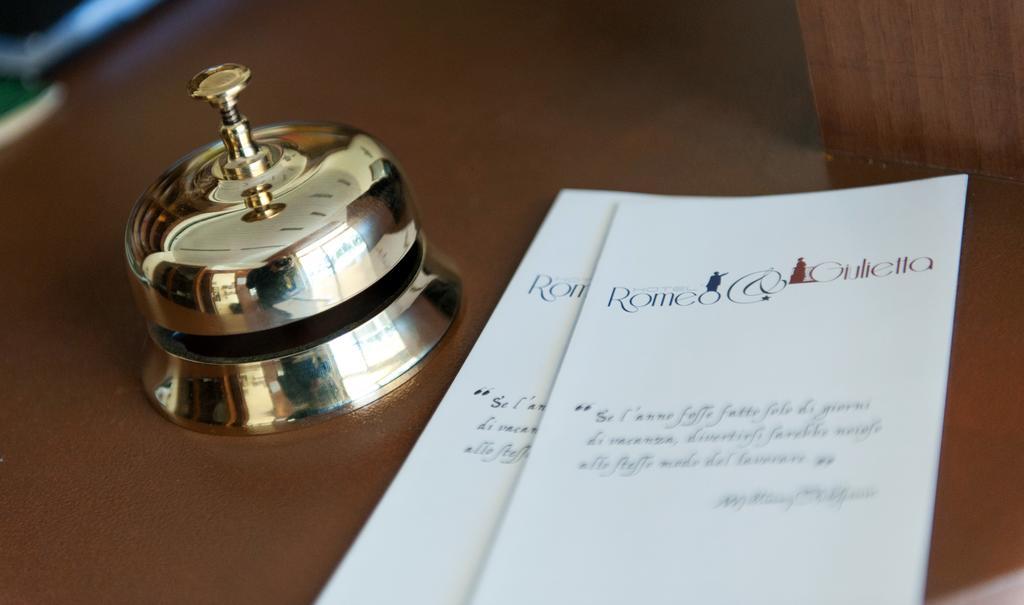 HOTEL
Rom
HOTEL
Romeo & Giulietta
“ Se l'an
di vacan
allo stess
“ Se l'anno fosse fatto solo di giorni
di vacanza, divertirsi sarebbe noioso
allo stesso modo del lavorare. ”